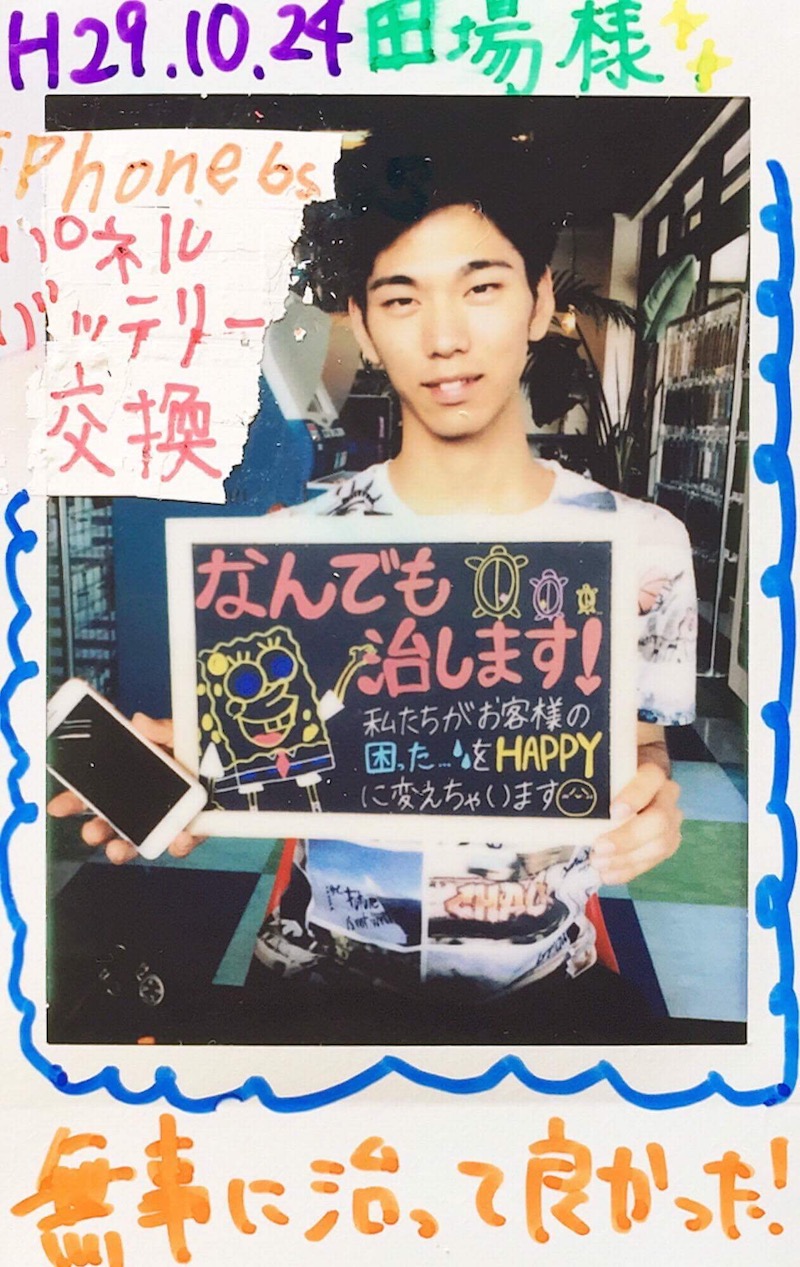 H29.10.24 田場様
iPhone 6s
パネル
バッテリー
交換
なんでも
治します!
私たちがお客様の
困った...をHAPPY
に変えちゃいます
無事に治って良かった!